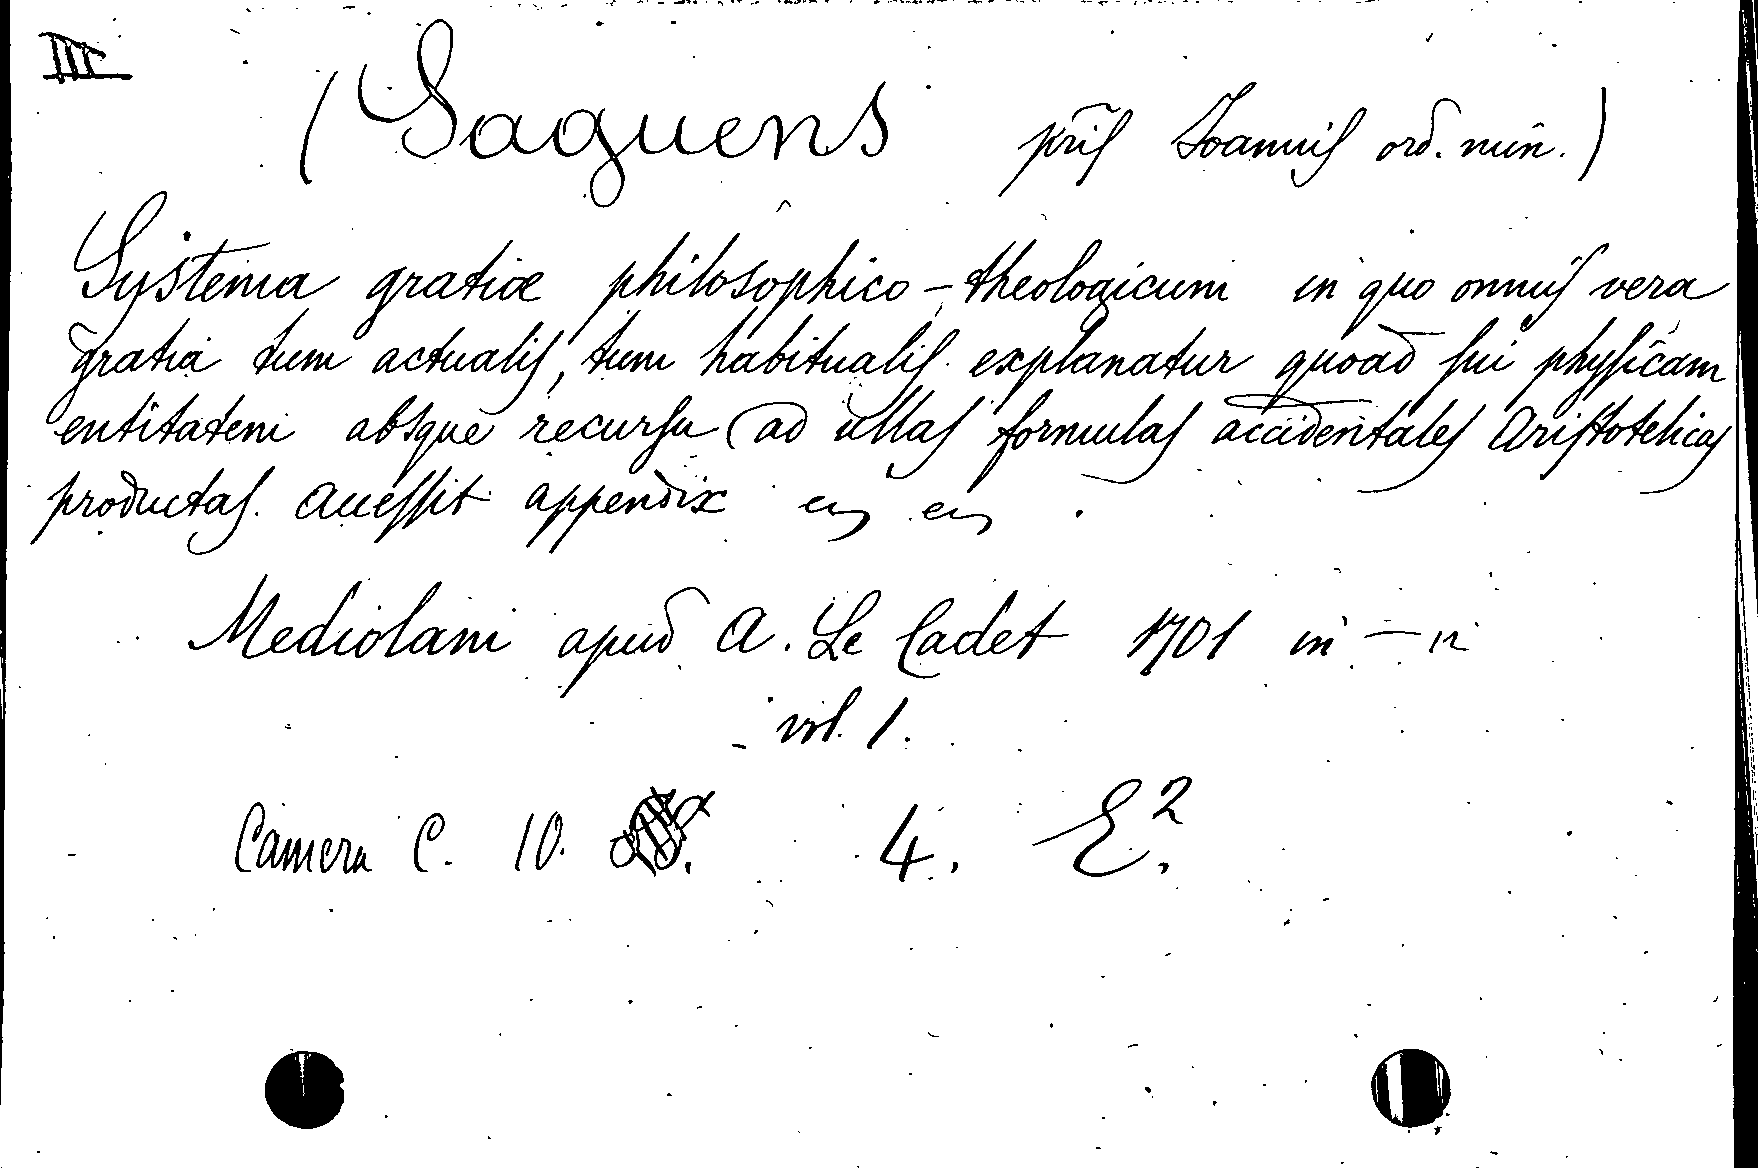 III
(Saguens pris Joannis ord. min.)
Systema gratiæ philosophico-theologicum in quo omnis vera
gratia tum actualis, tum habitualis explanatur quoad sui physicam
entitatem absque recursu ad ullas formulas accidentales Aristotelicas
productas. Accessit appendix
Mediolani apud A. Le Cadet 1701 in-12
vol. 1.
Camera C. 10. 4. E².